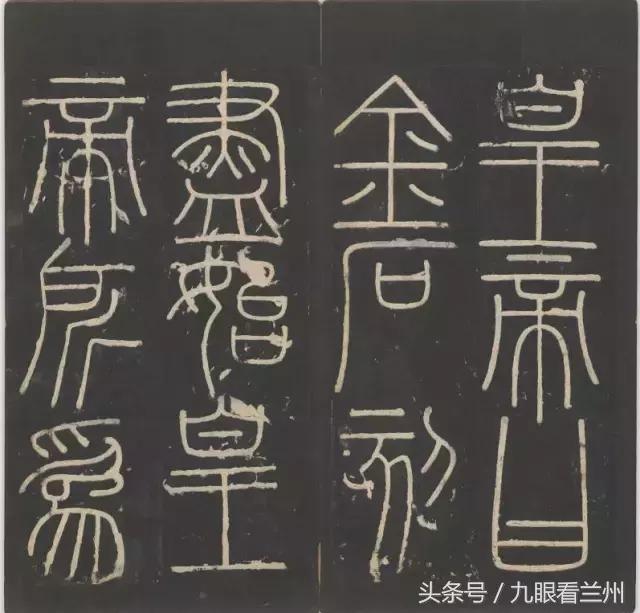 皇帝曰
金石刻
盡始皇
帝所爲
头条号 / 九眼看兰州